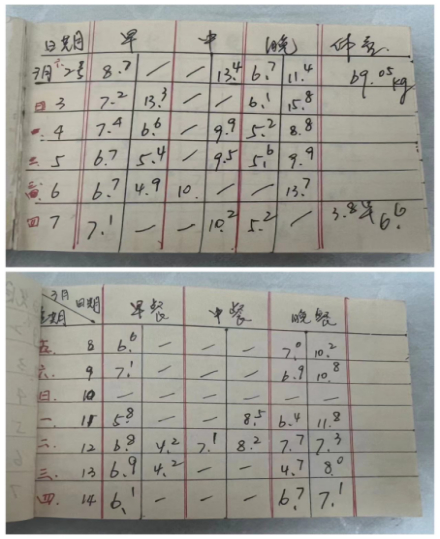 日期 早 中 晚 体重
3月 六. 2号 8.7 / / 13.4 6.7 11.4 69.05 kg
日 3 7.2 13.3 / / 6.1 15.8
一. 4 7.4 6.6 / 9.9 5.2 8.8
二. 5 6.7 5.4 / 9.5 5.6 9.9
三 6 6.7 4.9 10. / / 13.7
四 7 7.1 / / 10.2 5.2 / 3.8早 6.6
3月 日期 早餐 中餐 晚餐
星期
五. 8 6.6 / / / 7.0 10.2
六. 9 7.1 / / / 6.9 10.8
日. 10 / / / / / /
一. 11 5.8 / / 8.5 6.4 11.8
二. 12 6.8 4.2 7.1 8.2 7.7 7.3
三. 13 6.9 4.2 - - 4.7 8.0
四. 14 6.1 - - - 6.7 7.1